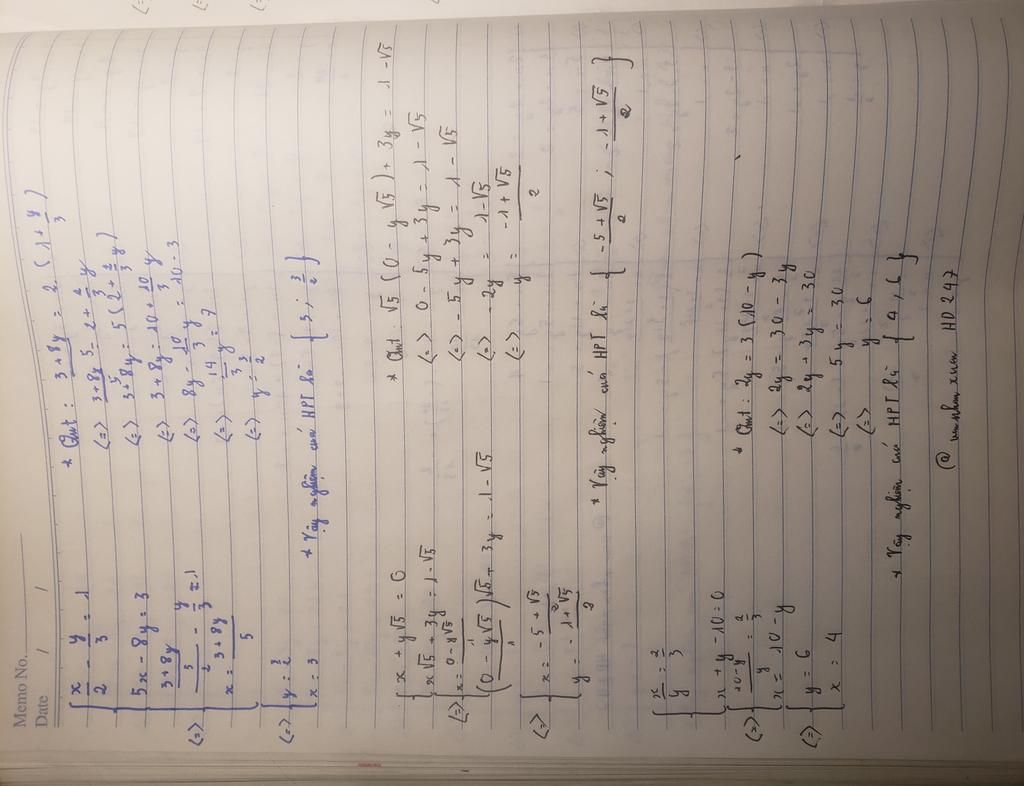 Memo No.
Date / /
{ x/2 - y/3 = 1
5x - 8y = 3
(=) { (3+8y)/5 / 2 - y/3 = 1
x = (3+8y)/5
(=) { y = 3/2
x = 3
* Qmt : (3+8y)/5 = 2 (1 + y/3)
(=) (3+8y)/5 = 2 + 2/3 y
(=) 3+8y = 5 (2 + 2/3 y)
(=) 3+8y = 10 + 10/3 y
(=) 8y - 10/3 y = 10 - 3
(=) 14/3 y = 7
(=) y = 3/2
* Vậy nghiệm của HPT là { 3 ; 3/2 }
{ x + y√5 = 0
x√5 + 3y = 1 - √5
(=) { x = 0 - y√5
(0 - y√5)√5 + 3y = 1 - √5
(=) { x = (-5 + √5)/2
y = (-1 + √5)/2
* Qmt : √5 (0 - y√5) + 3y = 1 - √5
(=) 0 - 5y + 3y = 1 - √5
(=) -5y + 3y = 1 - √5
(=) -2y = 1 - √5
(=) y = (-1 + √5)/2
* Vậy nghiệm của HPT là { (-5 + √5)/2 ; (-1 + √5)/2 }
{ x/y = 2/3
x + y - 10 = 0
(=) { (10-y)/y = 2/3
x = 10 - y
(=) { y = 6
x = 4
* Qmt : 2y = 3 (10 - y)
(=) 2y = 30 - 3y
(=) 2y + 3y = 30
(=) 5y = 30
(=) y = 6
* Vậy nghiệm của HPT là { 4 , 6 }
HD247